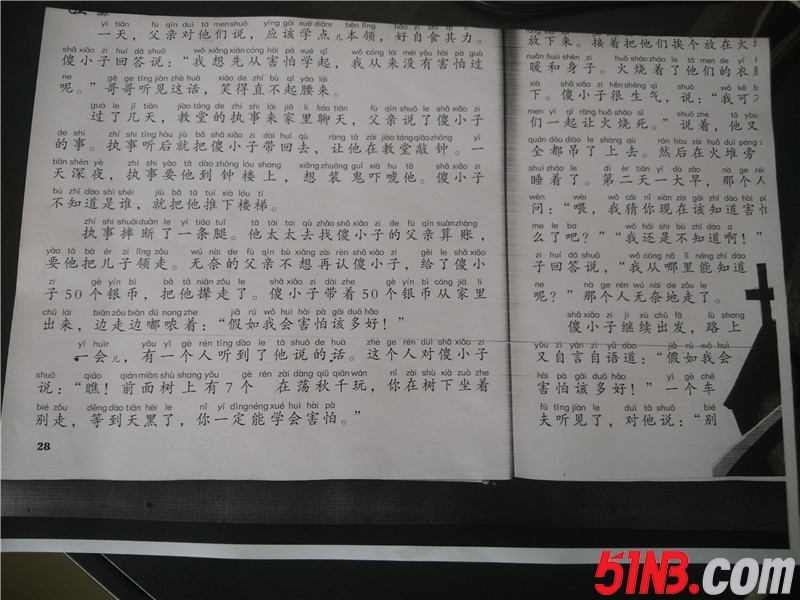 yī tiān fù qīn duì tā men shuō yīng gāi xué diǎnr běn lǐng
一天，父亲对他们说，应该学点儿本领，好自食其力。
shǎ xiǎo zi huí dá shuō wǒ xiǎng xiān cóng hài pà xué qǐ wǒ cóng lái méi yǒu hài pà guò
傻小子回答说：“我想先从害怕学起，我从来没有害怕过
ne gē ge tīng jiàn zhè huà xiào de zhí bù qǐ yāo lái
呢。”哥哥听见这话，笑得直不起腰来。
guò le jǐ tiān jiào táng de zhí shi lái jiā li liáo tiān fù qīn shuō le shǎ xiǎo zi
过了几天，教堂的执事来家里聊天，父亲说了傻小子
de shì zhí shi tīng hòu jiù bǎ shǎ xiǎo zi dài huí qù ràng tā zài jiào táng qiāo zhōng yī
的事。执事听后就把傻小子带回去，让他在教堂敲钟。一
tiān shēn yè zhí shi yào tā dào zhōng lóu shang xiǎng zhuāng guǐ xià hu tā shǎ xiǎo zi
天深夜，执事要他到钟楼上，想装鬼吓唬他。傻小子
bù zhī dào shì shéi jiù bǎ tā tuī xià lóu tī
不知道是谁，就把他推下楼梯。
zhí shi shuāi duàn le yī tiáo tuǐ tā tài tai qù zhǎo shǎ xiǎo zi de fù qīn suàn zhàng
执事摔断了一条腿。他太太去找傻小子的父亲算账，
yào tā bǎ ér zi lǐng zǒu wú nài de fù qīn bù xiǎng zài rèn shǎ xiǎo zi gěi le shǎ xiǎo
要他把儿子领走。无奈的父亲不想再认傻小子，给了傻小
zi gè yín bì bǎ tā niǎn zǒu le shǎ xiǎo zi dài zhe gè yín bì cóng jiā li
子50个银币，把他撵走了。傻小子带着50个银币从家里
chū lái biān zǒu biān dū nang zhe jiǎ rú wǒ huì hài pà gāi duō hǎo
出来，边走边嘟哝着：“假如我会害怕该多好！”
yī huìr yǒu yī gè rén tīng dào le tā shuō de huà zhè ge rén duì shǎ xiǎo zi
一会儿，有一个人听到了他说的话。这个人对傻小子
shuō qiáo qián miàn shù shang yǒu gè rén zài dàng qiū qiān wán nǐ zài shù xià zuò zhe
说：“瞧！前面树上有7个 在荡秋千玩，你在树下坐着
bié zǒu děng dào tiān hēi le nǐ yī dìng néng xué huì hài pà
别走，等到天黑了，你一定能学会害怕。”
28
放下来。接着把他们挨个放在火
nuǎn huo shēn zi huǒ shāo zháo le tā men de
暖和身子。火烧着了他们的衣
xià shǎ xiǎo zi hěn shēng qì shuō
下。傻小子很生气，说：“我可
men yī qǐ ràng huǒ shāo sǐ
们一起让火烧死。”说着，他又
quán dōu diào le shàng qù
全都吊了上去。然后在火堆旁
shuì zháo le dì èr tiān yī dà zǎo nà ge rén
睡着了。第二天一大早，那个人
问：“喂，我猜你现在该知道害怕
me le ba wǒ hái shi bù zhī dào a
么了吧？”“我还是不知道啊！”
子回答说，“我从哪里能知道
ne nà ge rén wú nài de zǒu le
呢？”那个人无奈地走了。
shǎ xiǎo zi jì xù chū fā lù shang
傻小子继续出发，路上
yòu zì yán zì yǔ dào jiǎ rú wǒ huì
又自言自语道：“假如我会
hài pà gāi duō hǎo yī gè chē
害怕该多好！”一个车
fū tīng jiàn le duì tā shuō bié
夫听见了，对他说：“别
51NB.com